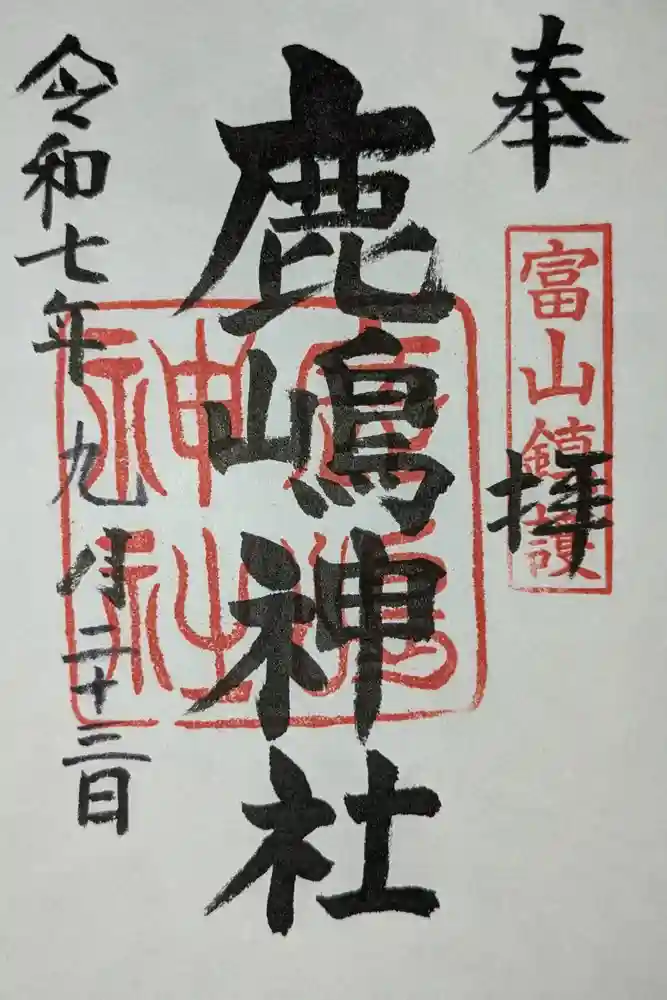 奉拝
富山鎮護
鹿嶋神社
鹿島神社
令和七年九月二十三日